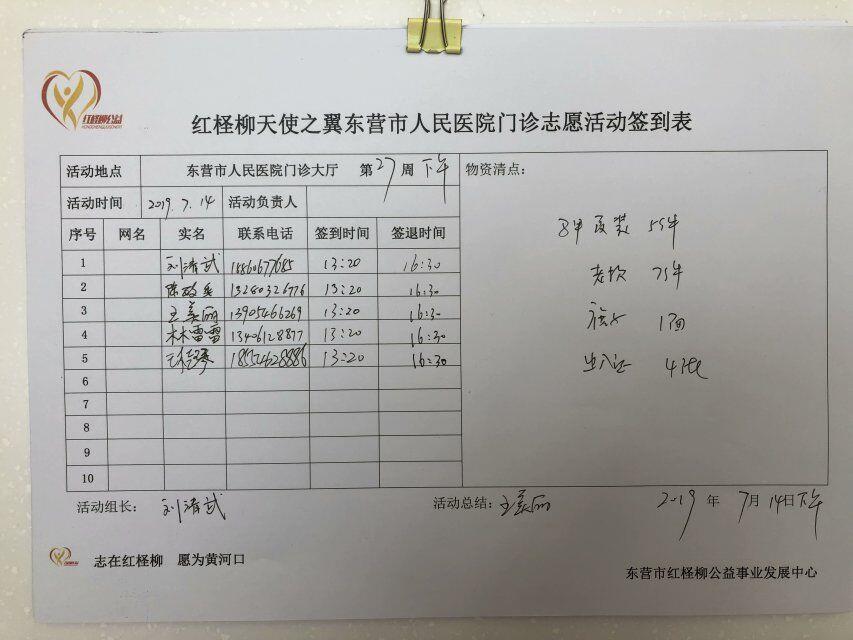 红柽柳公益
红柽柳天使之翼东营市人民医院门诊志愿活动签到表
活动地点 东营市人民医院门诊大厅 第27周 下午 物资清点:
活动时间 2019.7.14 活动负责人
序号 网名 实名 联系电话 签到时间 签退时间
1 刘清武 18560677685 13:20 16:30
2 13280326776 13:20 16:30
3 王美丽 13905466269 13:20 16:30
4 林雷雷 13406128877 13:20 16:30
5 18554628886 13:20 16:30
6
7
8
9
10
1面
出入证 4张
活动组长: 刘清武 活动总结: 王美丽 2019 年 7月 14日下午
志在红柽柳 愿为黄河口
东营市红柽柳公益事业发展中心